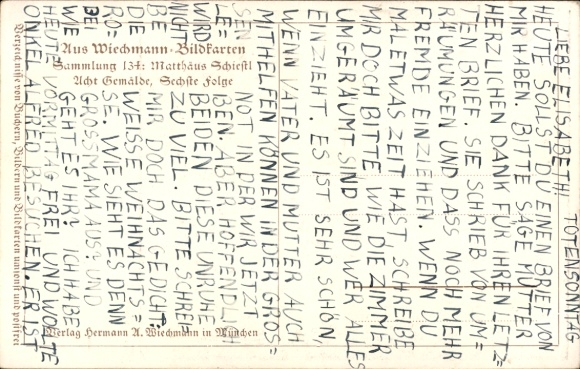 TOTENSONNTAG
LIEBE ELISABETH!
HEUTE SOLLST DU EINEN BRIEF VON
MIR HABEN. BITTE SAGE MUTTER
HERZLICHEN DANK FÜR IHREN LETZ=
TEN BRIEF. SIE SCHRIEB VON UM=
RÄUMUNGEN UND DASS NOCH MEHR
FREMDE EINZIEHEN. WENN DU
MAL ETWAS ZEIT HAST SCHREIBE
MIR DOCH BITTE WIE DIE ZIMMER
UMGERÄUMT SIND UND WER ALLES
EINZIEHT. ES IST SEHR SCHÖN,
WENN VATER UND MUTTER AUCH
MITHELFEN KÖNNEN IN DER GROS=
SEN NOT IN DER WIR JETZT
LE= BEN. ABER HOFFENDLICH
WIRD BEIDEN DIESE UNRUHE
NICHT ZU VIEL. BITTE SCHREI=
BE MIR DOCH DAS GEDICHT:
DIE WEISSE WEIHNACHTS=
RO= SE. WIE SIEHT ES DENN
BEI GROSSMAMA AUS? UND
WIE GEHT ES IHR? ICH HABE
HEUTE VORMITTAG FREI UND WOLLTE
ONKEL ALFRED BESUCHEN. ER IST
Aus Wiechmann-Bildkarten
Sammlung 134: Matthäus Schiestl
Acht Gemälde, Sechste Folge
Verlag Hermann A. Wiechmann in München
Verzeichnisse von Büchern, Bildern und Bildkarten umsonst und postfrei